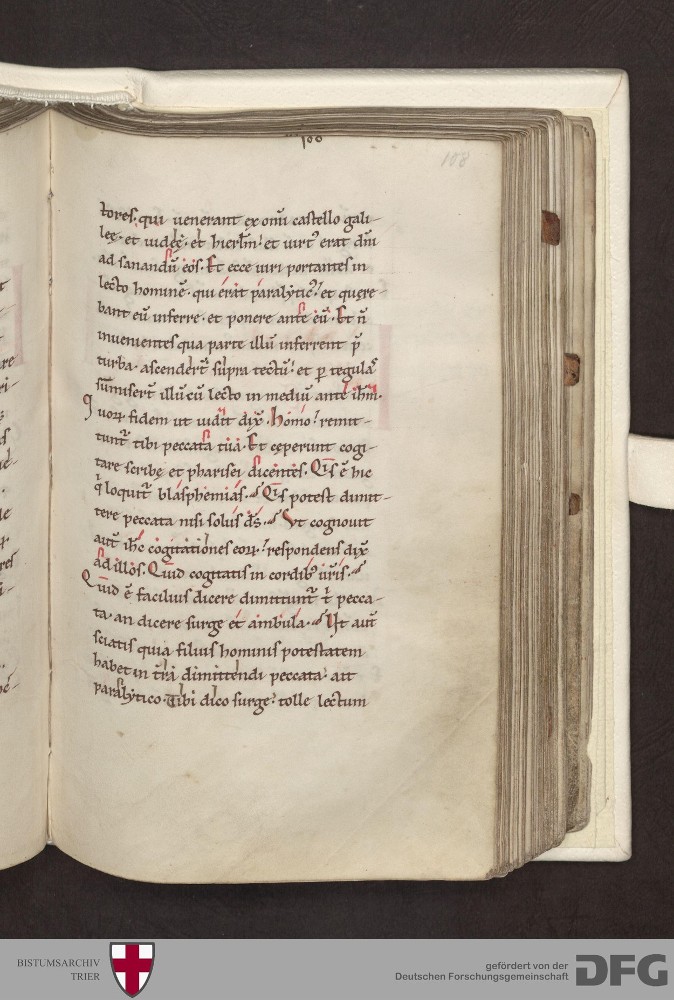 100
108
tores. qui uenerant ex om̅i castello gali-
leę. et iudęę. et hierl̅m. et uirt᷒ erat dn̅i
ad sanandu̅ eos. Et ecce uiri portantes in
lecto homine̅. qui erat paralytic᷒. et quere-
bant eu̅ inferre. et ponere ante eu̅. Et n̅
inuenientes qua parte illu̅ inferrent p̅
turba. ascender̅t supra tectu̅. et ꝑ tegulas
su̅miser̅t illu̅ cu̅ lecto in mediu̅ ante ih̅m.
Quoꝝ fidem ut uidit dix̅. Homo. remit-
tunt̅ tibi peccata tua. Et ceperunt cogi-
tare scribę et pharisei dicentes. Qis e̅ hic
q̇ loquit̅ blasphemias. Qis potest dimit-
tere peccata nisi solus d̅s. Vt cognouit
aut̅ ih̅c cogitationes eoꝝ. respondens dix̅
ad illos. Quid cogitatis in cordib᷒ ur̅is.
Quid e̅ facilius dicere dimittunt̅ t̅ pecca-
ta. an dicere surge et ambula. Ut aut̅
sciatis quia filius hominis potestatem
habet in tr̅a dimittendi peccata. ait
paralytico. Tibi dico surge. tolle lectum
BISTUMSARCHIV
TRIER
gefördert von der
Deutschen Forschungsgemeinschaft
DFG